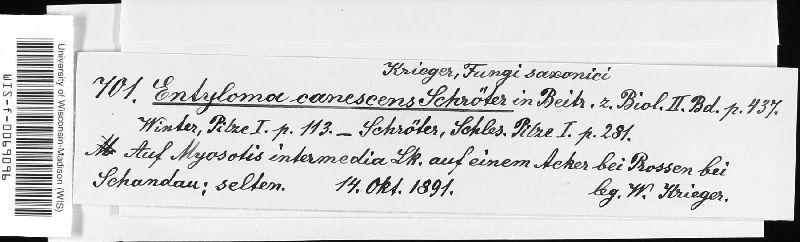 Krieger, Fungi saxonici
701. Entyloma canescens Schröter in Beitr. z. Biol. II. Bd. p. 437.
Winter, Pilze I. p. 113. – Schröter, Schles. Pilze I. p. 281.
Auf Myosotis intermedia Lk. auf einem Acker bei Prossen bei
Schandau; selten. 14. Okt. 1891. leg. W. Krieger.
University of Wisconsin-Madison (WIS)
WIS-f-0069096